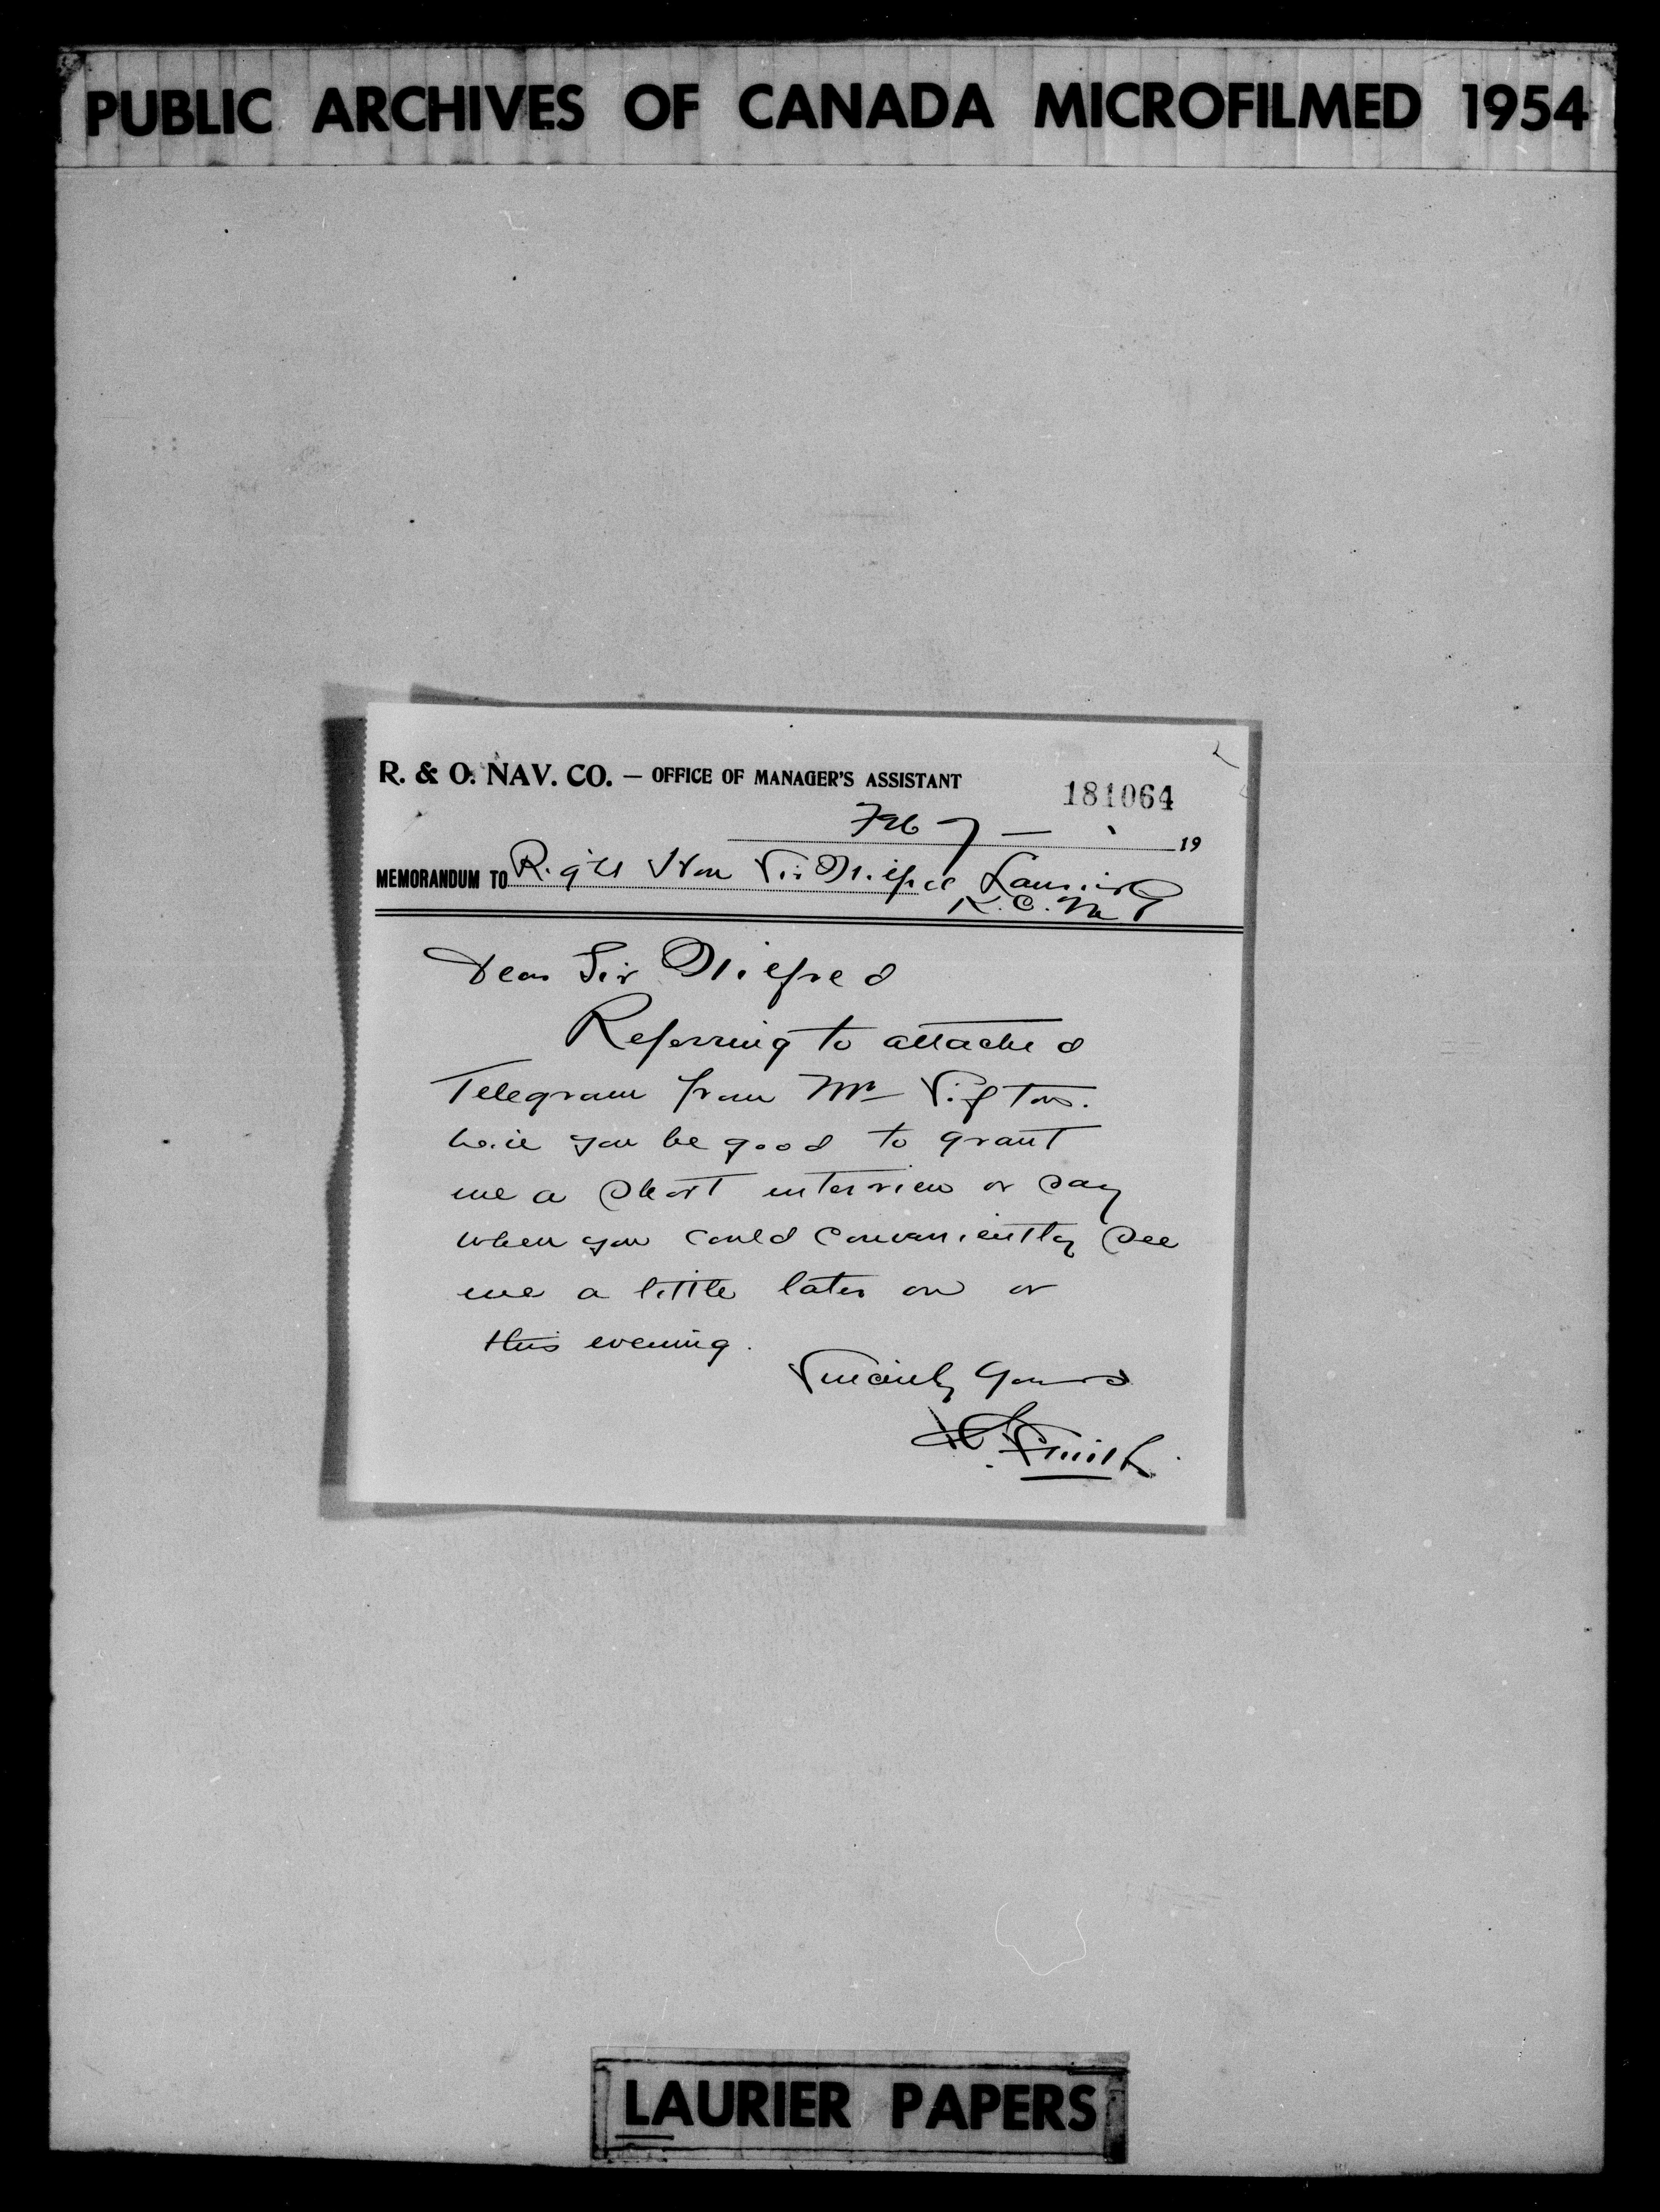 PUBLIC ARCHIVES OF CANADA MICROFILMED 1954
R. & O. NAV. CO. — OFFICE OF MANAGER'S ASSISTANT
181064
Feb 7 — 19
MEMORANDUM TO Right Hon Sir Wilfred Laurier
K.C.M.G
Dear Sir Wilfred
Referring to attached
Telegram from Mr Sifton.
Will you be good to grant
me a short interview or say
when you could conveniently see
me a little later on or
this evening.
Sincerely Yours
Smith
LAURIER PAPERS